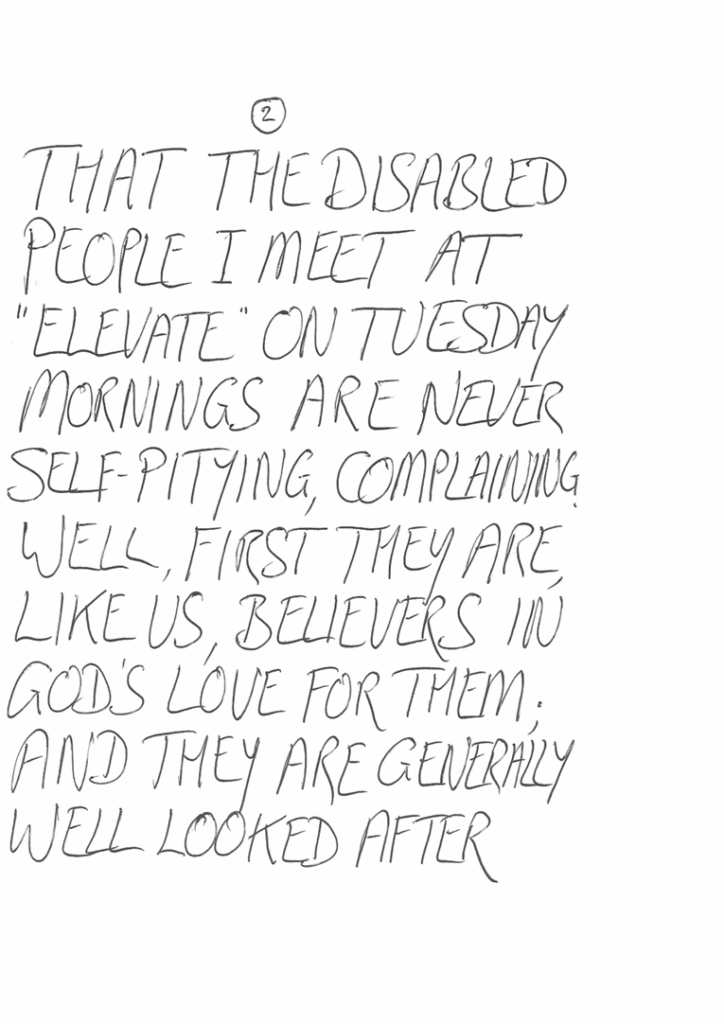 2
THAT THE DISABLED
PEOPLE I MEET AT
"ELEVATE" ON TUESDAY
MORNINGS ARE NEVER
SELF-PITYING, COMPLAINING.
WELL, FIRST THEY ARE,
LIKE US, BELIEVERS IN
GOD'S LOVE FOR THEM;
AND THEY ARE GENERALLY
WELL LOOKED AFTER